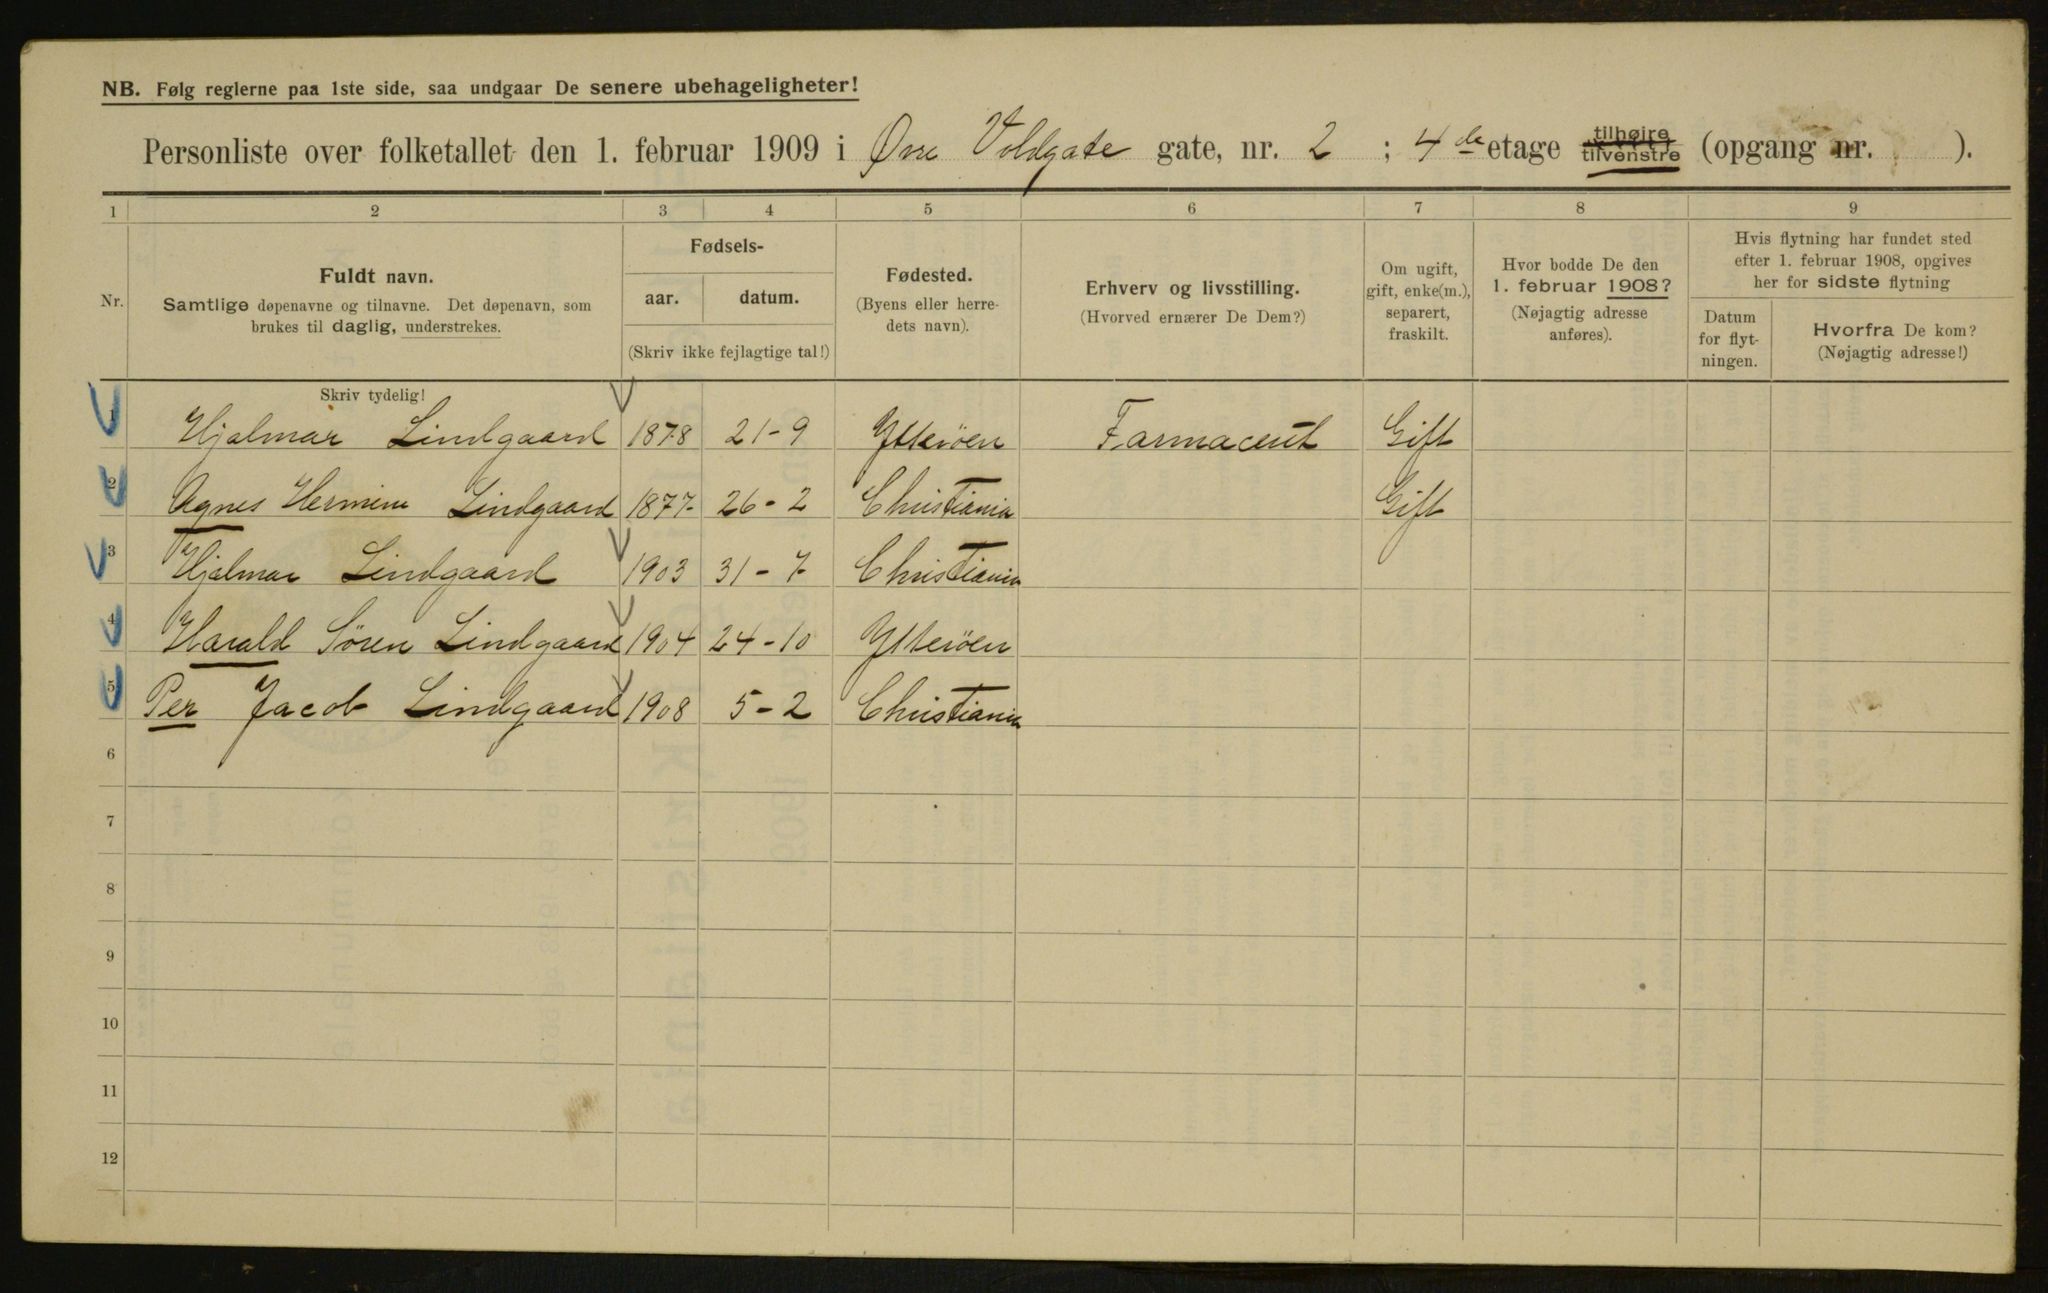 NB. Følg reglerne paa 1ste side, saa undgaar De senere ubehageligheter!
Personliste over folketallet den 1. februar 1909 i Øvre Voldgate gate, nr. 2 ; 4de etage tilhøire tilvenstre (opgang nr. ).
1 2 3 4 5 6 7 8 9
Nr.
Fuldt navn.
Samtlige døpenavne og tilnavne. Det døpenavn, som
brukes til daglig, understrekes.
Fødsels-
aar. datum.
(Skriv ikke fejlagtige tal!)
Fødested.
(Byens eller herre-
dets navn).
Erhverv og livsstilling.
(Hvorved ernærer De Dem?)
Om ugift,
gift, enke(m.),
separert,
fraskilt.
Hvor bodde De den
1. februar 1908?
(Nøjagtig adresse
anføres).
Hvis flytning har fundet sted
efter 1. februar 1908, opgives
her for sidste flytning
Datum
for flyt-
ningen.
Hvorfra De kom?
(Nøjagtig adresse!)
Skriv tydelig!
1 Hjalmar Lindgaard 1878 21-9 Ytterøen Farmaceut Gift
2 Agnes Hermine Lindgaard 1877 26-2 Christiania Gift
3 Hjalmar Lindgaard 1903 31-7 Christiania
4 Harald Sören Lindgaard 1904 24-10 Ytterøen
5 Per Jacob Lindgaard 1908 5-2 Christiania
6
7
8
9
10
11
12